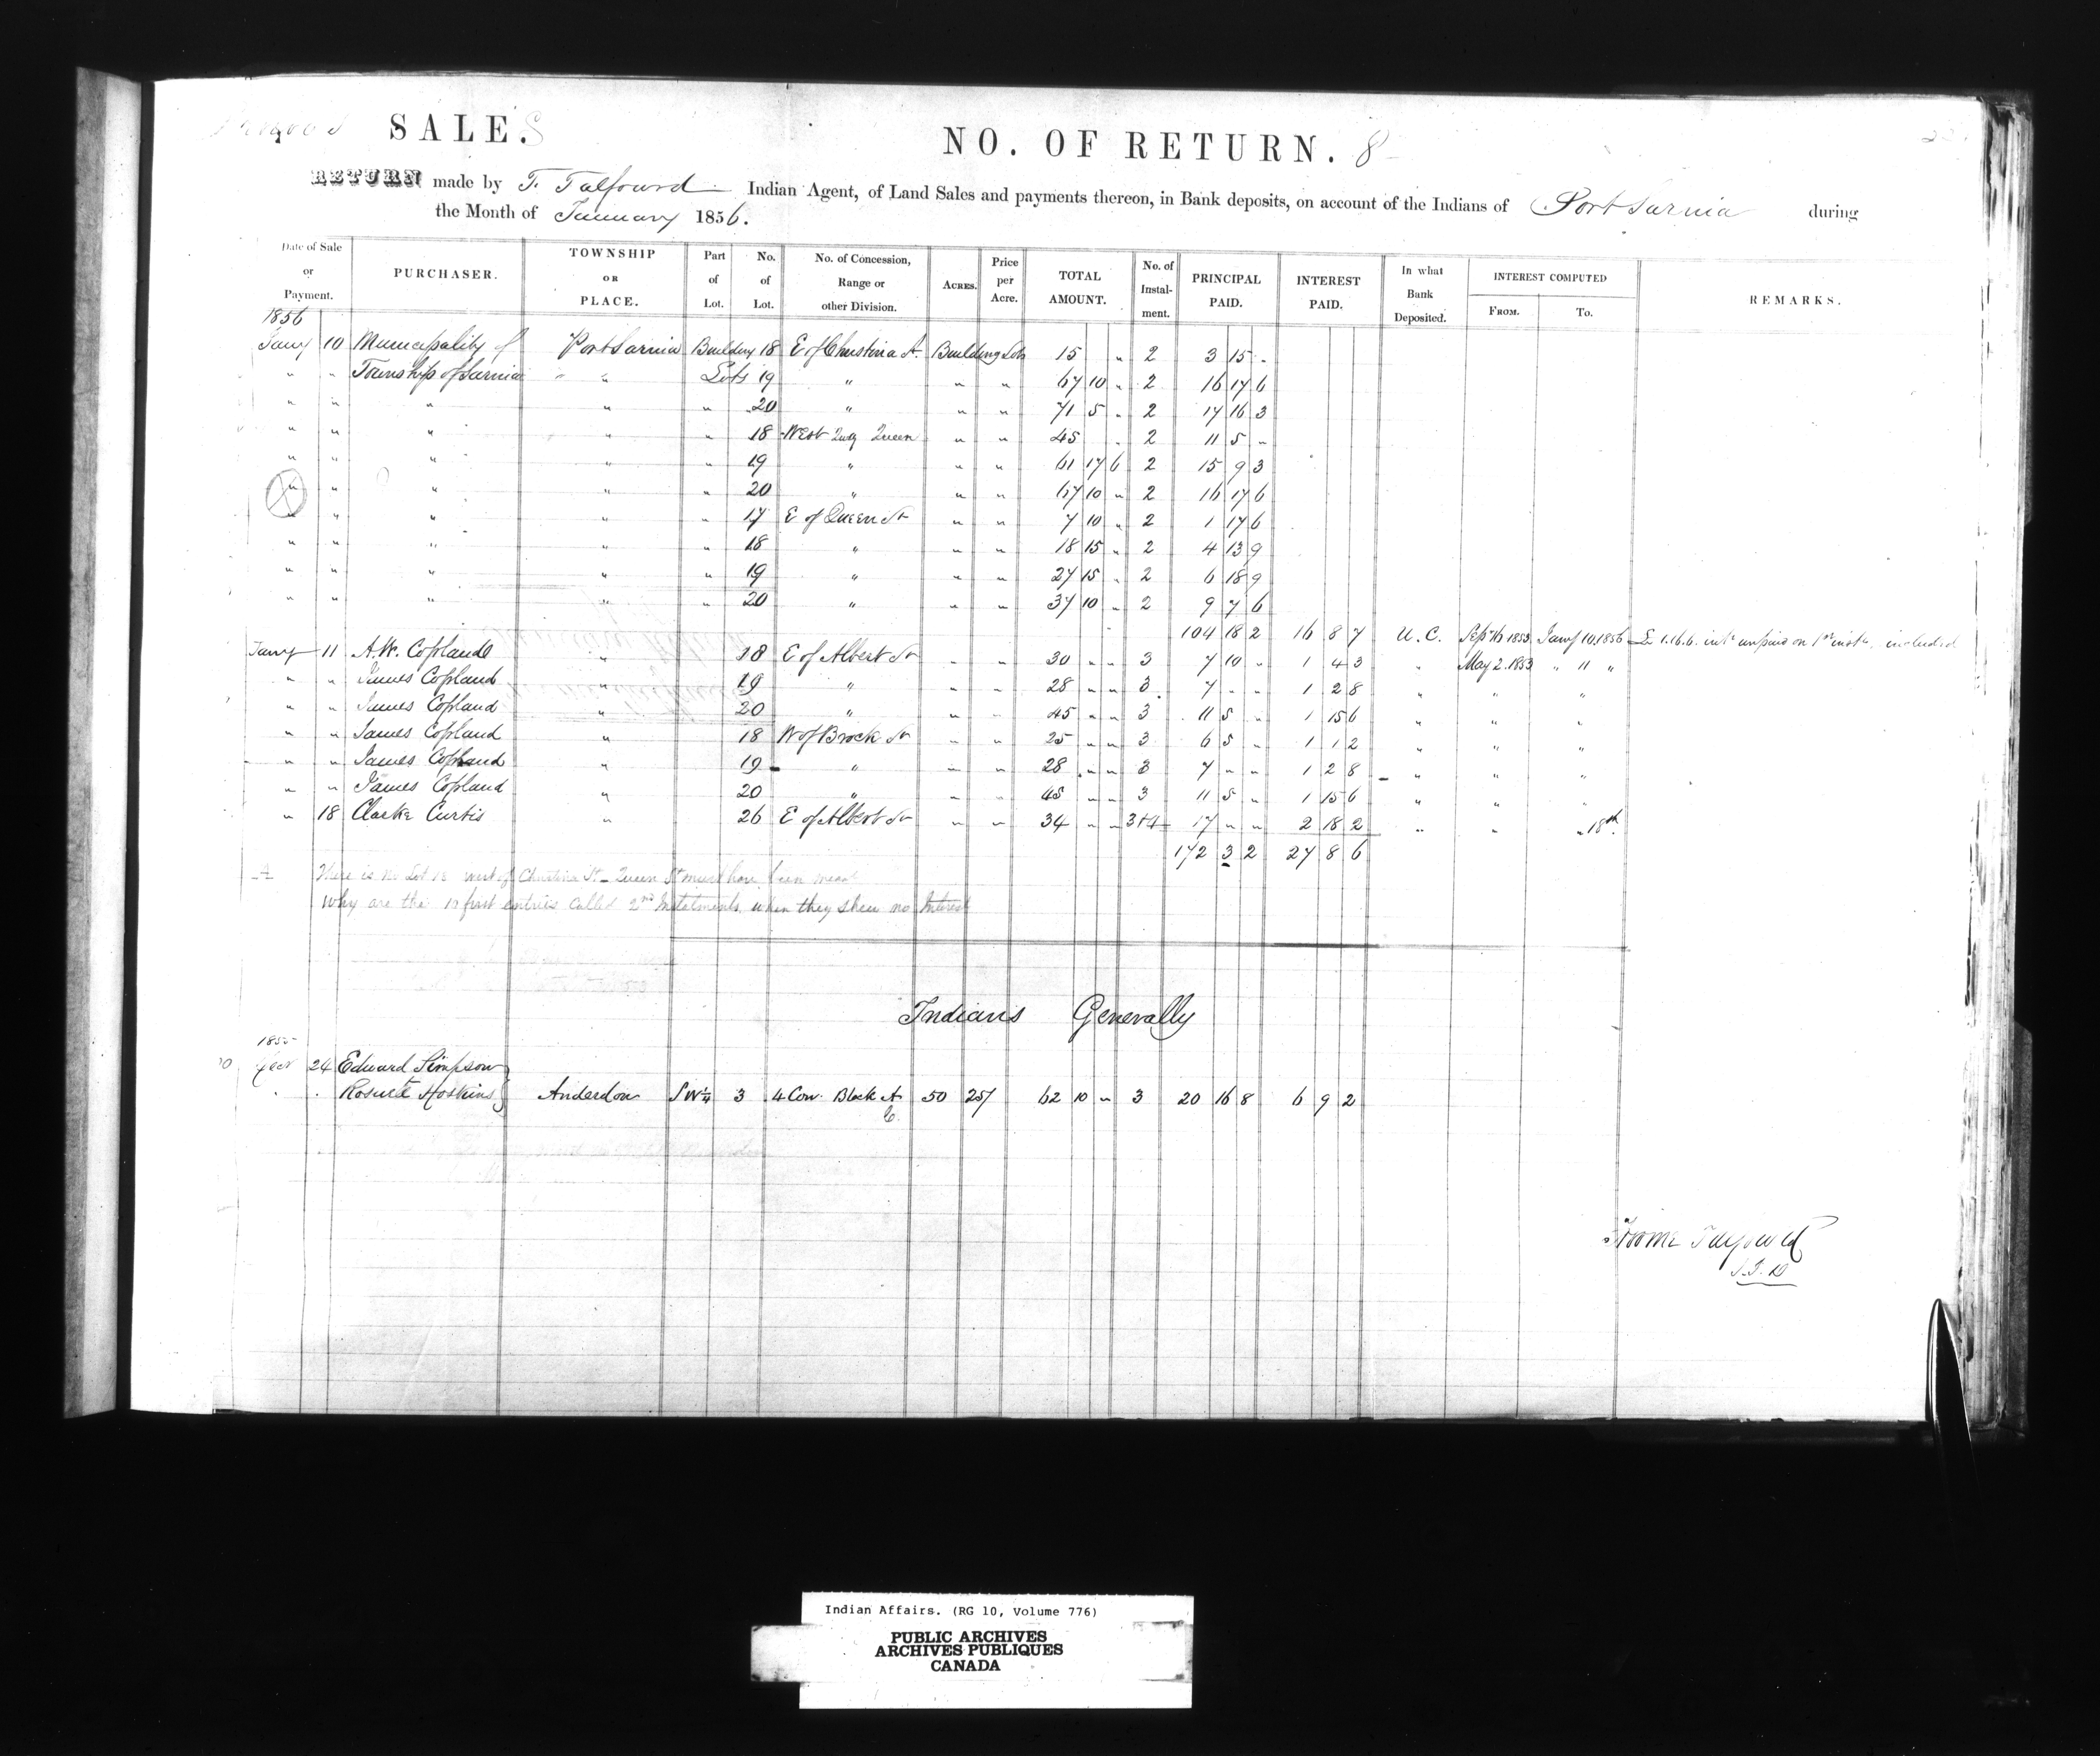 SALES
NO. OF RETURN. 8
RETURN made by F. Talfourd Indian Agent, of Land Sales and payments thereon, in Bank deposits, on account of the Indians of Port Sarnia during
the Month of January 1856.
Date of Sale or Payment. PURCHASER. TOWNSHIP OR PLACE. Part of Lot. No. of Lot. No. of Concession, Range or other Division. ACRES. Price per Acre. TOTAL AMOUNT. No. of Instalment. PRINCIPAL PAID. INTEREST PAID. In what Bank Deposited. INTEREST COMPUTED FROM. To. REMARKS.
1856
Jany 10 Municipality of Port Sarnia Building 18 E of Christina St. Building Lots 15 " 2 3 15 -
" " Township of Sarnia " " Lots 19 " " " 67 10 " 2 16 17 6
" " " " " 20 " " " 71 5 " 2 17 16 3
" " " " " 18 West Queen " " 45 " 2 11 5 "
" " " " " 19 " " " 61 17 6 2 15 9 3
" " " " " 20 " " " 67 10 " 2 16 17 6
" " " " " 17 E of Queen St " " 7 10 " 2 1 17 6
" " " " " 18 " " " 18 15 " 2 4 13 9
" " " " " 19 " " " 27 15 " 2 6 18 9
" " " " " 20 " " " 37 10 " 2 9 7 6
104 18 2 16 8 7 U. C. Sept 10 1853 Jany 10, 1856 £ 1.16.6. intt unpaid on 1st instt. included
Jany 11 A.W. Copland " 18 E of Albert St " " 30 " " 3 7 10 " 1 4 3 " May 2. 1853 " 11 "
" " James Copland " 19 " " " 28 " " 3 7 " " 1 2 8 " " "
" " James Copland " 20 " " " 45 " " 3 11 5 " 1 15 6 " " "
" " James Copland " 18 W of Brock St " " 25 " " 3 6 5 " 1 1 2 " " "
" " James Copland 19 " " " 28 " " 3 7 " " 1 2 8 " " "
" " James Copland " 20 " " " 45 " " 3 11 5 " 1 15 6 " " "
" 18 Clarke Curtis " 26 E of Albert St " " 34 " " 3+4 17 " " 2 18 2 " " " 18th
172 3 2 27 8 6
There is no Lot 18 west of Christina St - Queen St must have been meant
Why are the 10 first entries called 2nd Instalments when they shew no Interest
Indians Generally
1855
24 Edward Simpson
Hoskins Anderdon SW 1/4 3 4 Con. Block A 50 25/ 62 10 " 3 20 16 8 6 9 2
Froome Talfourd
Indian Affairs. (RG 10, Volume 776)
PUBLIC ARCHIVES
ARCHIVES PUBLIQUES
CANADA